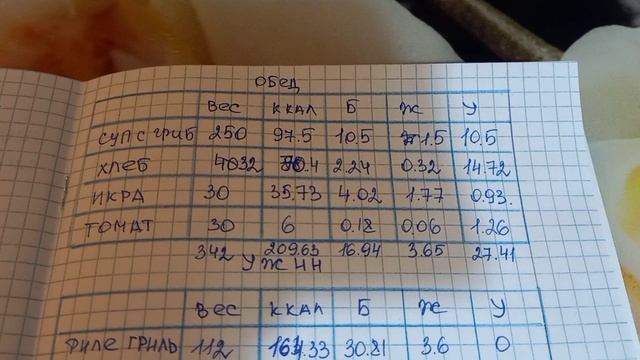 ОБЕД
ВЕС ККАЛ Б Ж У
СУП С ГРИБ 250 97.5 10.5 1.5 10.5
ХЛЕБ 32 70.4 2.24 0.32 14.72
ИКРА 30 35.73 4.02 1.77 0.93.
ТОМАТ 30 6 0.18 0.06 1.26
342 209.63 16.94 3.65 27.41
УЖИН
ВЕС ККАЛ Б Ж У
ФИЛЕ ГРИЛЬ 112 164.33 30.81 3.6 0